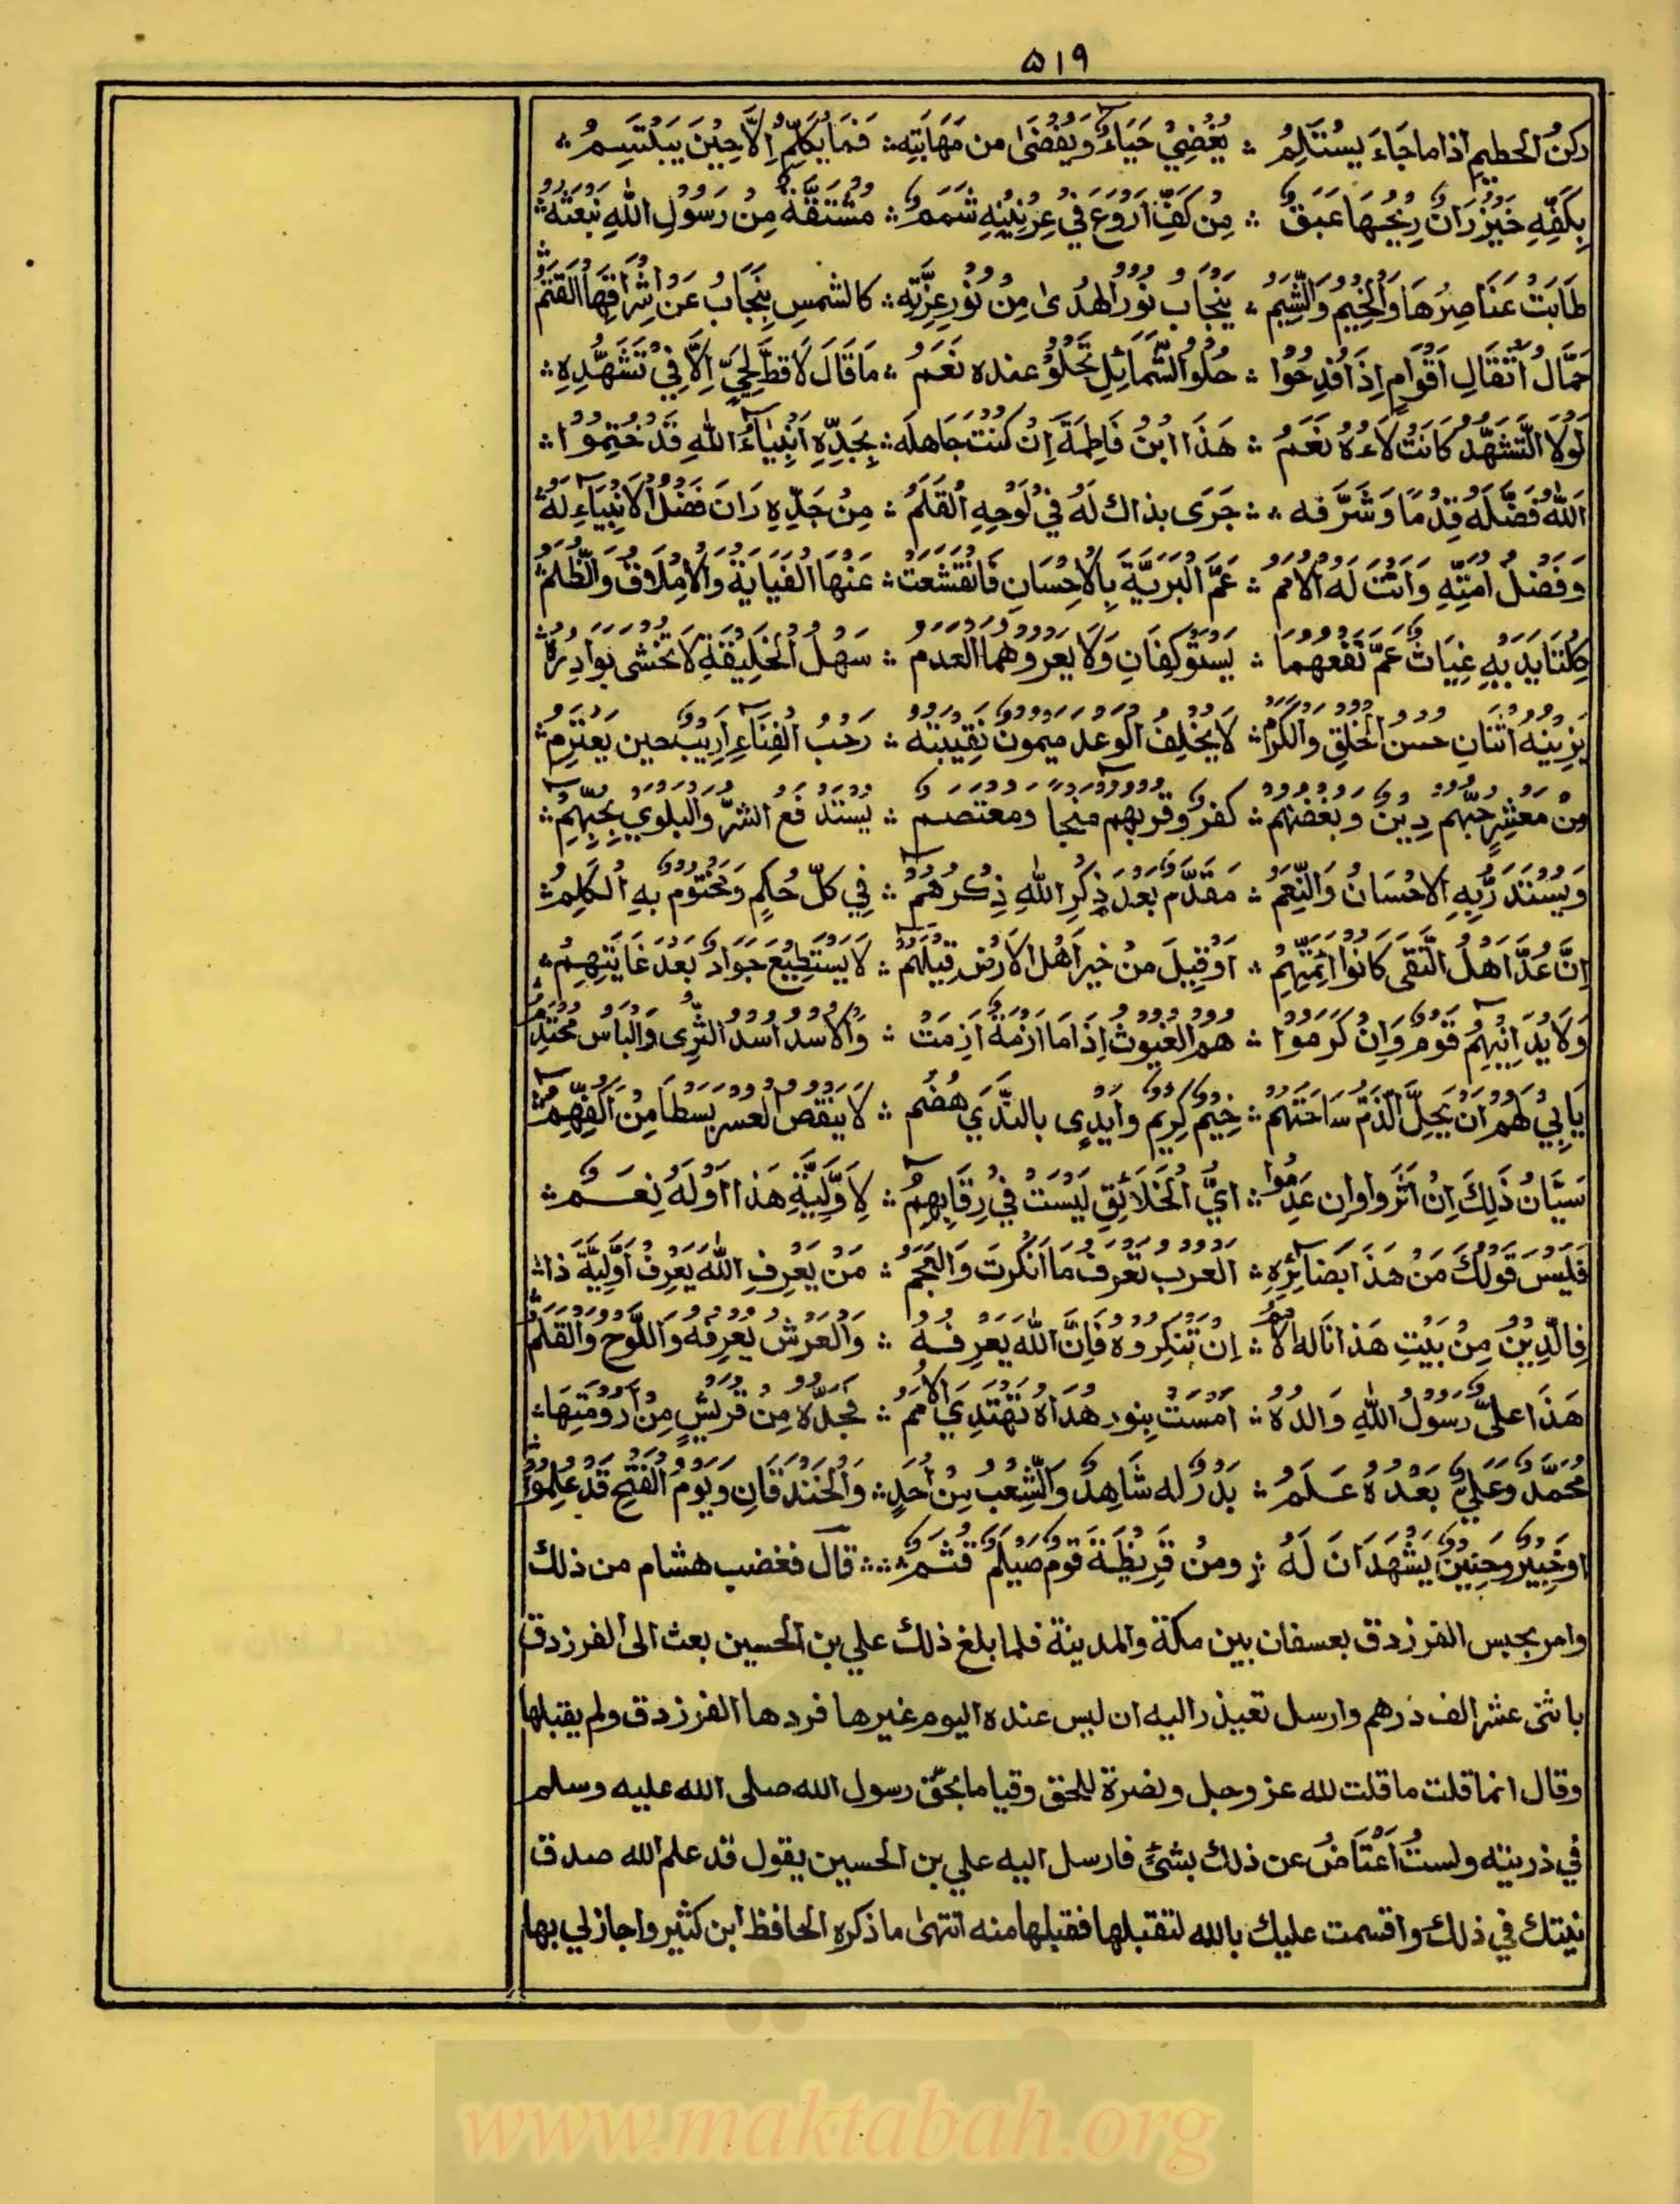 ٥١٩
ركنُ الحطيم اذا ما جَاءَ يَسْتَلِمُ ؞ يُغْضِيْ حَيَاءً وَيُغْضَىٰ من مَهَابَتِهٖ ؞ فَمَا يُكَلَّمُ اِلَّا حِيْنَ يَبْتَسِمُ ؞
بِكَفِّهٖ خَيْزُرَانٌ رِيْحُهَا عَبَقٌ ؞ مِنْ كَفِّ اَرْوَعَ فِيْ عِرْنِيْنِهٖ شَمَمٌ ؞ مُشْتَقَّةٌ مِنْ رَسُوْلِ اللهِ نَبْعَتُهٗ ؞
طَابَتْ عَنَاصِرُهَا وَالْخِيْمُ وَالشِّيَمُ ؞ يَنْجَابُ نُوْرُ الهُدٰى مِنْ نُوْرِ عِزَّتِهٖ ؞ كالشمسِ يَنْجَابُ عَنْ اِشْرَاقِهَا الْقَتَمُ
حَمَّالُ اَثْقَالِ اَقْوَامٍ اِذَا فُدِحُوْا ؞ حُلْوُ الشَّمَائِلِ تَحْلُوْ عنده نَعَمُ ؞ مَا قَالَ لَا قطُّ لِحَيٍّ اِلَّا فِيْ تَشَهُّدِهٖ ؞
لَوْلَا التَّشَهُّدُ كَانَتْ لَاءُهٗ نَعَمُ ؞ هَذَا ابْنُ فَاطِمَةَ اِنْ كُنْتَ جَاهِلَه ؞ بِجَدِّهٖ اَنْبِيَاءُ اللهِ قَدْ خُتِمُوْا ؞
اللهُ فَضَّلَهٗ قِدْمًا وَشَرَّفَه ؞ جَرَى بذاك لَهٗ فِيْ لَوْحِهِ الْقَلَمُ ؞ مِنْ جَدِّهٖ دَانَ فَضْلُ الْاَنْبِيَاءِ لَهٗ
وَفَضْلُ اُمَّتِهٖ دَانَتْ لَهُ الْاُمَمُ ؞ عَمَّ الْبَرِيَّةَ بِالْاِحْسَانِ فَانْقَشَعَتْ ؞ عَنْهَا الغيايةُ وَالْاِمْلَاقُ وَالظُّلَمُ
كِلْتَا يَدَيْهِ غِيَاثٌ عَمَّ نَفْعُهُمَا ؞ يُسْتَوْكَفَانِ وَلَا يعروهما العدمُ ؞ سَهْلُ الْخَلِيْقَةِ لَا تخشى بَوَادِرُهٗ
يَزِيْنُهٗ اثْنَانِ حسن الخلقِ والكرمُ ؞ لَا يُخْلِفُ الوعد ميمون نَقِيْبَتُهٗ ؞ رَحْبُ الْفِنَاءِ اَرِيْبٌ حين يَعْتَزِمُ
مِنْ معشرٍ حُبُّهم دِيْنٌ وَبُغْضُهُم ؞ كفرٌ وقربهم مَنْجاً ومعتصمُ ؞ يُسْتَدْفَعُ الشرُّ والبلوي بِحُبِّهِمُ ؞
وَيُسْتَزَدُّ بِهِ الْاِحْسَانُ وَالنِّعَمُ ؞ مقدَّم بَعْدَ ذِكْرِ اللهِ ذِكْرُهُمْ ؞ فِيْ كلّ حُكْمٍ وَمَخْتُوْم بِهِ الْكَلِمُ ؞
اِنْ عُدَّ اَهْلُ التّقى كَانُوْا اَئِمَّتَهُمْ ؞ اَوْ قِيْلَ مَنْ خير اَهْلِ الْاَرْضِ قِيْلَهُمْ ؞ لَا يَسْتَطِيْعُ جَوَادٌ بَعْدَ غَايَتِهِمْ ؞
وَلَا يُدَانِيْهِمْ قَوْمٌ وَاِنْ كَرُمُوْا ؞ هم الغيوثُ اِذَا مَا ازمةٌ اَزِمَتْ ؞ وَالْاُسْدُ اُسْدُ الشَّرٰى وَالبَأسُ مُحْتَدِمُ
يَأبِيْ لَهُمْ اَنْ يَحِلَّ الذَّمُّ سَاحَتَهُمْ ؞ خِيْمٌ كَرِيْمٌ وايدٍى بالنَّدَي هُضُمُ ؞ لَا ينقص العسر بَسْطاً مِنْ اَكُفِّهِمْ
سَيَّانُ ذَلِكَ اِنْ اَثْرَوا وان عَدِمُوْا ؞ اَيُّ الْخَلَائِقِ لَيْسَتْ فِيْ رِقَابِهِمْ ؞ لِاَوَّلِيَّةِ هَذا اوْلَهٗ نِعَمُ ؞
فَلَيْسَ قَوْلُكَ مَنْ هَذَا بِضَائِرِهٖ ؞ العرب تَعْرِفُ مَا اَنْكَرْتَ وَالْعَجَمُ ؞ مَنْ يَعْرِفِ اللهَ يَعْرِفْ اَوَّلِيَّةَ ذا ؞
فالدِّيْنُ مِنْ بَيْتِ هَذَا نَالَهُ الْاُمَمُ ؞ اِنْ تُنْكِرُوْهُ فَاِنَّ اللهَ يَعْرِفُهٗ ؞ وَالْعَرْشُ يَعْرِفُهٗ وَاللَّوْحُ وَالْقَلَمُ
هَذَا عَلِيٌّ رَسُوْلُ اللهِ وَالدُهٗ ؞ اَمْسَتْ بِنور هُدَاهُ تَهْتَدِي الْاُمَمُ ؞ فَجَدُّهٗ مِنْ قُرَيْشٍ مِنْ اَرُوْمَتِهَا ؞
مُحَمَّدٌ وَعَلِيٌّ بَعْدَهٗ عَلَمُ ؞ بَدْرٌ له شَاهِدٌ وَالشِّعْبُ مِنْ اُحُدٍ ؞ وَالْخَنْدَقَانِ ويوم الفتحِ قَدْ عَلِمُوْا
اوخَيْبر وحنينٌ يَشْهَدَانِ لَهٗ ؞ ومنْ قُرَيْظَةَ يوم صَيْلَمٌ قَثَمُ ؞ قال فغضب هشام من ذلك
وامر بحبس الفرزدق بعسفان بين مكة والمدينة فلما بلغ ذلك علي بن الحسين بعث الى الفرزدق
باثنى عشر الف درهم وارسل تعيذر اليه ان ليس عنده اليوم غيرها فردها الفرزدق ولم يقبلها
وقال انما قلت ما قلت لله عز وجل ونصرة للحق وقياما بحق رسول الله صلى الله عليه وسلم
في ذريته ولستُ اَعْتَاضُ عن ذلك بشئٍ فارسل اليه علي بن الحسين يقول قد علم الله صدق
نيتك في ذلك واقسمت عليك بالله لتقبلها فقبلها منه انتهىٰ ما ذكره الحافظ ابن كثير واجاز لي بها
www.maktabah.org